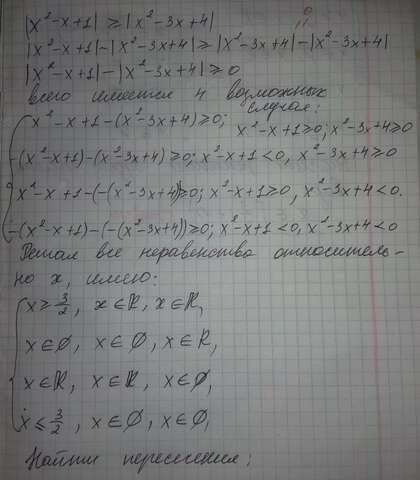 |x²-x+1| ≥ |x²-3x+4|
|x²-x+1|-|x²-3x+4| ≥ |x²-3x+4|-|x²-3x+4|
|x²-x+1|-|x²-3x+4| ≥ 0
всего имеется 4 возможных случая:
x²-x+1-(x²-3x+4) ≥ 0; x²-x+1 ≥ 0; x²-3x+4 ≥ 0
-(x²-x+1)-(x²-3x+4) ≥ 0; x²-x+1 < 0, x²-3x+4 ≥ 0
x²-x+1-(-(x²-3x+4)) ≥ 0; x²-x+1 ≥ 0, x²-3x+4 < 0.
-(x²-x+1)-(-(x²-3x+4)) ≥ 0; x²-x+1 < 0, x²-3x+4 < 0
Решая все неравенства относитель-
но x, имею:
x ≥ 3/2, x ∈ ℝ, x ∈ ℝ,
x ∈ ∅, x ∈ ∅, x ∈ ℝ,
x ∈ ℝ, x ∈ ℝ, x ∈ ∅,
x ≤ 3/2, x ∈ ∅, x ∈ ∅,
Найти пересечения;